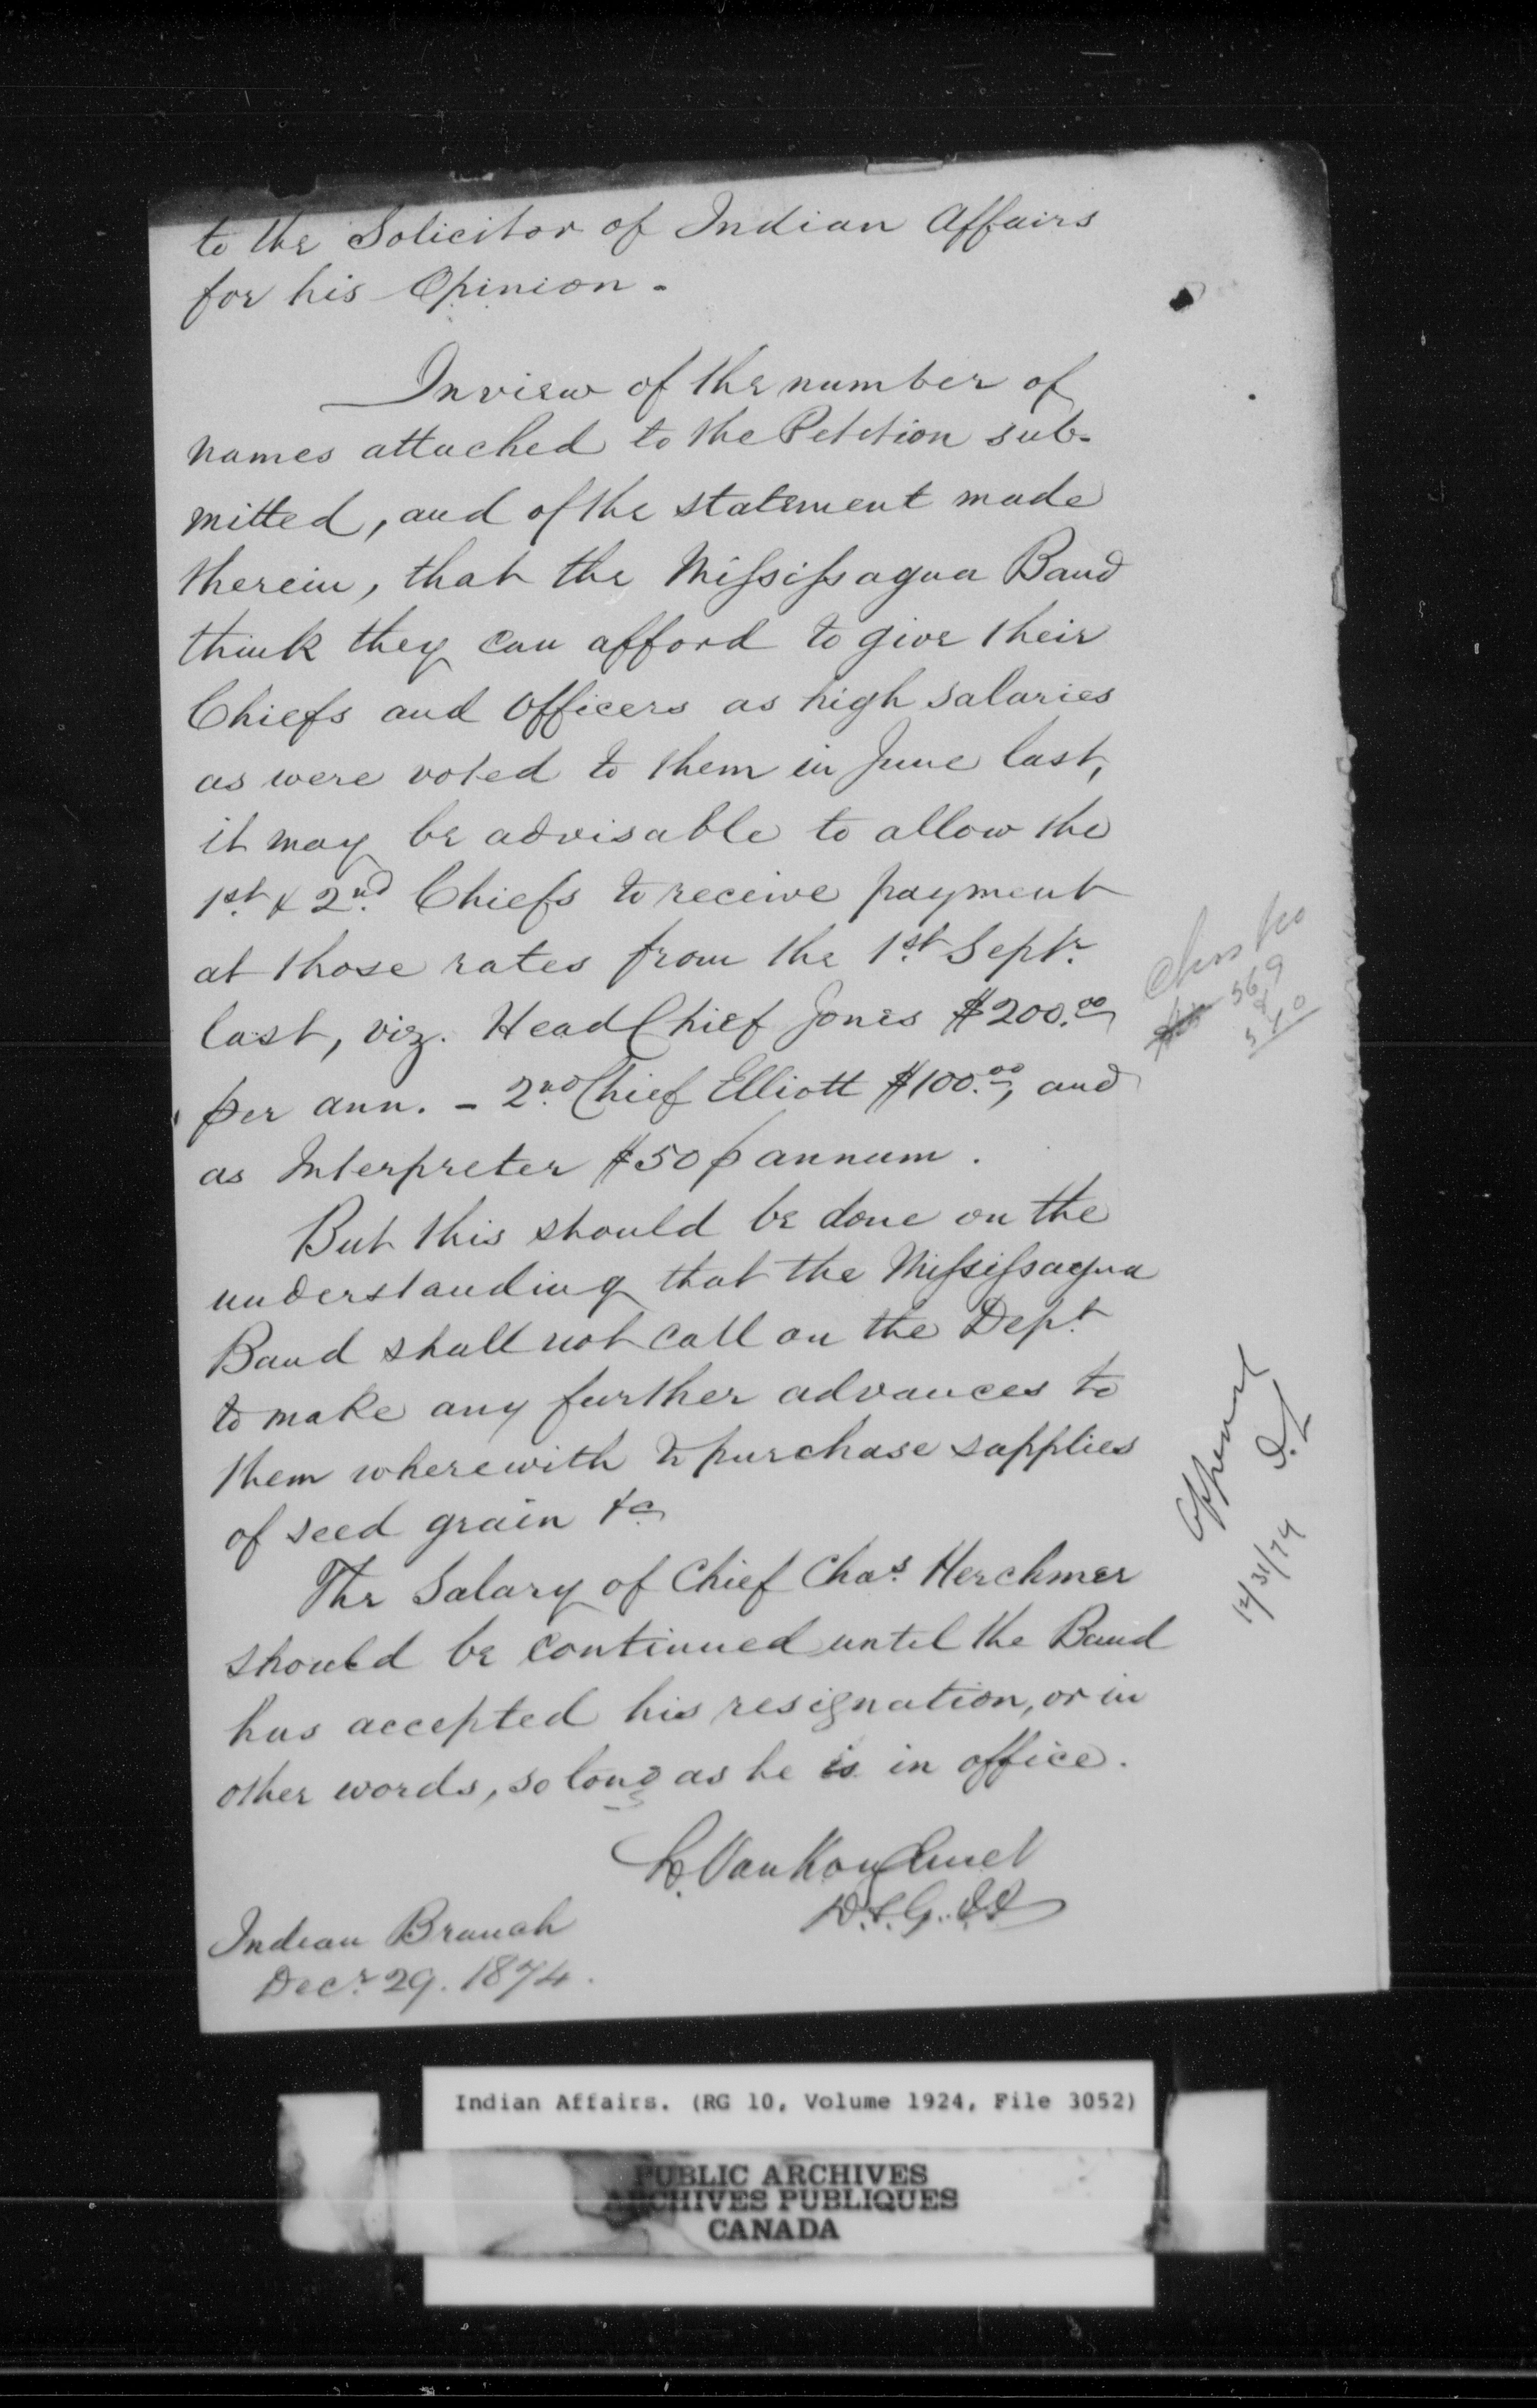 to the Solicitor of Indian Affairs
for his Opinion.
In view of the number of
names attached to the Petition sub-
mitted, and of the statement made
therein, that the Mississagua Band
think they can afford to give their
Chiefs and Officers as high salaries
as were voted to them in June last,
it may be advisable to allow the
1st & 2nd Chiefs to receive payment
at those rates from the 1st Septr
last, viz. Head Chief Jones $200.00
per ann. – 2nd Chief Elliott $100.00, and
as Interpreter $50 p annum.
But this should be done on the
understanding that the Mississagua
Band shall not call on the Dept
to make any further advances to
them wherewith to purchase supplies
of seed grain &c
The Salary of Chief Chas. Herchmer
should be continued until the Band
has accepted his resignation, or in
other words, so long as he is in office.
L. VanKoughnet
D.S.G.I.A
Indian Branch
Decr 29. 1874.
569
&
570
12/31/74
Indian Affairs. (RG 10, Volume 1924, File 3052)
PUBLIC ARCHIVES
ARCHIVES PUBLIQUES
CANADA